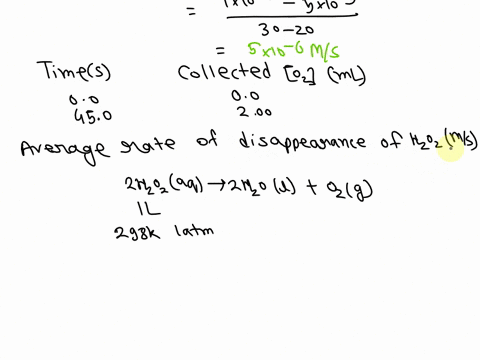 30-20
= 5×10⁻⁶ M/s
Time(s) Collected [O₂] (mL)
0.0 0.0
45.0 2.00
Average rate of disappearance of H₂O₂ (M/s)
2H₂O₂(aq) → 2H₂O(l) + O₂(g)
1L
298K 1atm